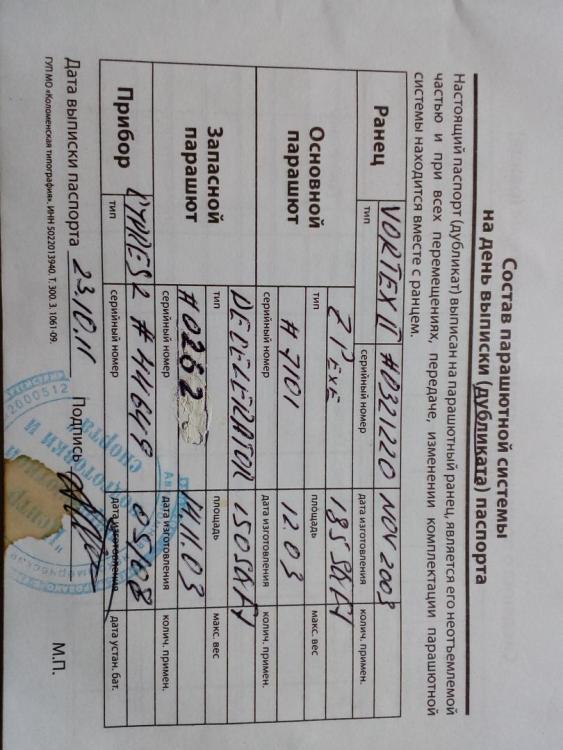 Состав парашютной системы
на день выписки (дубликата) паспорта
Настоящий паспорт (дубликат) выписан на парашютный ранец, является его неотъемлемой
частью и при всех перемещениях, передаче, изменении комплектации парашютной
системы находится вместе с ранцем.
Ранец VORTEX II #0321220 NOV 2003
тип серийный номер дата изготовления колич. примен.
Основной парашют
ZIP EXE 185 SQ FY
тип площадь макс. вес
#7101 12.03
серийный номер дата изготовления колич. примен.
Запасной парашют
DECELERATOR 150 SQ FY
тип площадь макс. вес
#0262 14.11.03
серийный номер дата изготовления колич. примен.
Прибор CYPRES 2 #44649 05/08
тип серийный номер дата изготовления дата устан. бат.
Дата выписки паспорта 23.10.11 Подпись М.П.
ГУП МО «Коломенская типография». ИНН 5022013940. Т. 300. З. 1061-09.
2000512
спорта